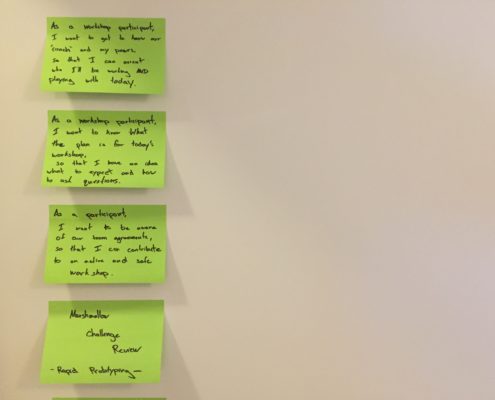 As a workshop participant,
I want to get to know our
"coach" and my peers
so that I can
who I'll be working AND
playing with today.
As a workshop participant,
I want to know what
the plan is for today's
workshop,
so that I have an idea
what to expect and how
to ask questions.
As a participant,
I want to be aware
of our team agreements,
so that I can contribute
to an active and safe
workshop.
Marshmallow
Challenge
Review
- Rapid Prototyping -